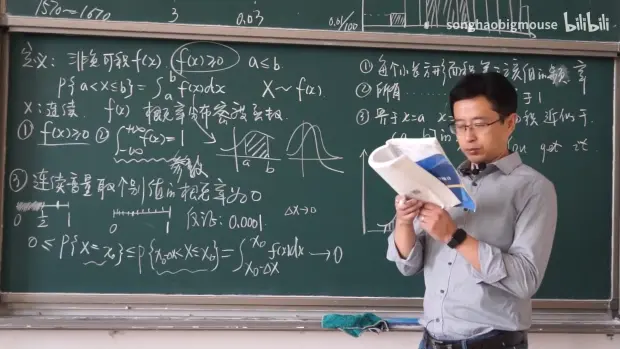 1570~1670 3 0.03
0.01/100
songhaobigmouse bilibili
定义: 非负可积f(x). f(x)≥0 a≤b.
P{a<X≤b}=∫_a^b f(x)dx X~f(x).
X:连续. f(x) 概率分布密度函数
① f(x)≥0 ② ∫_{-∞}^{+∞} f(x)=1
a b
③ 连续变量取个别值的概率为0
0 1/2 1 0 1 0.0001 Δx→0
0≤P{X=x₀}≤P{x₀-Δx<X≤x₀}=∫_{x₀-Δx}^{x₀} f(x)dx→0
① 每个小长方形面积等于该组的频率
② 所有 于1
③ 介于x=a x 积近似于
get it